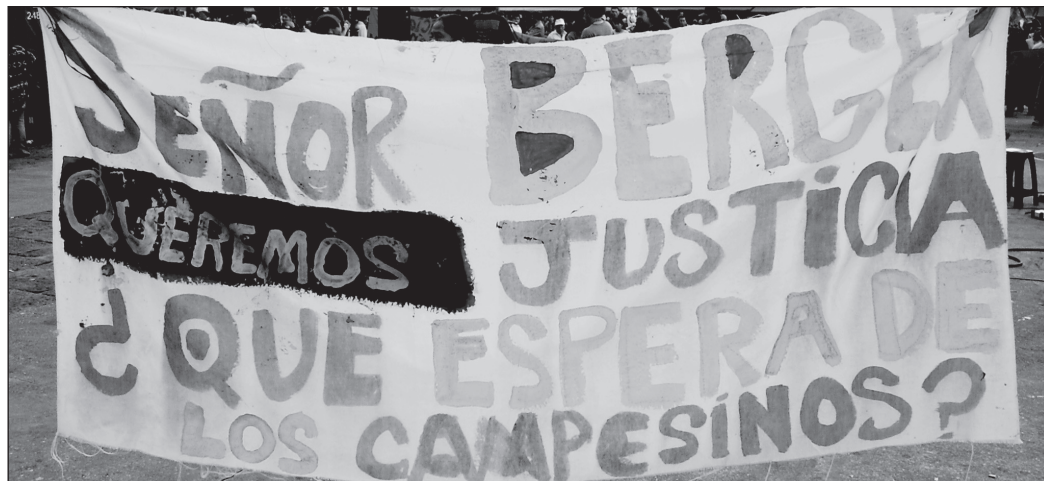 248
SEÑOR BERGER
QUEREMOS JUSTICIA
¿QUE ESPERA DE
LOS CAMPESINOS?